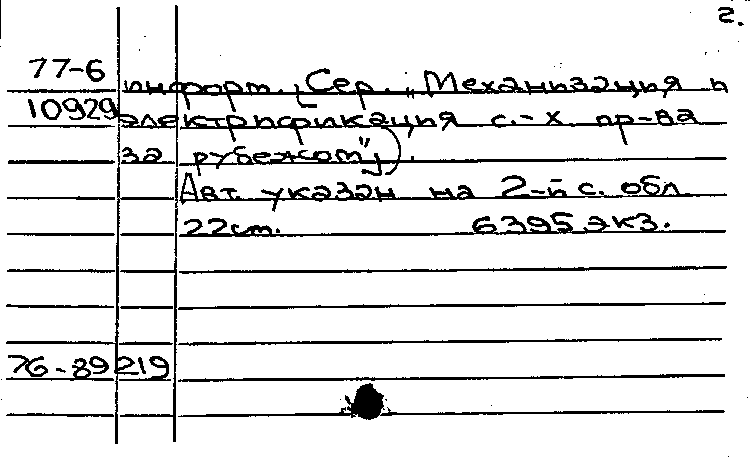 2.
77-6
информ. Сер. „Механизация и
10929
электрификация с.-х. пр-ва
за рубежом");
Авт. указан на 2-й с. обл.
22 см. 6395 экз.
76-89219